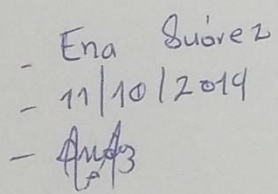 - Ena Suárez
- 11/10/2019
-